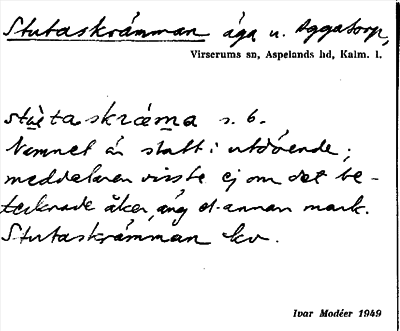 Stutaskråmman äga u. Aggatorp,
Virserums sn, Aspelands hd, Kalm. l.
stu̇̀taskråma s. b.
Namnet är statt i utdöende;
meddelaren visste ej om det be-
tecknade åker, äng el. annan mark.
Stutaskråmman kv.
Ivar Modéer 1949